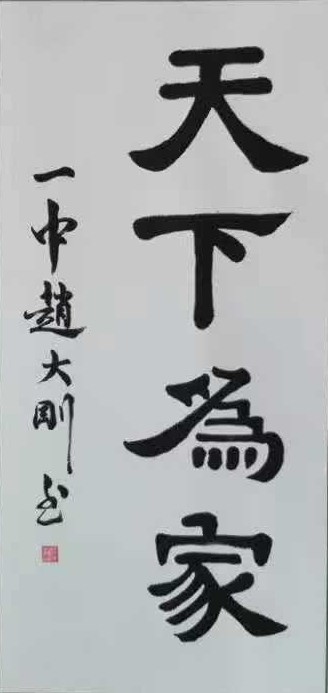 天下為家
一中趙大剛书